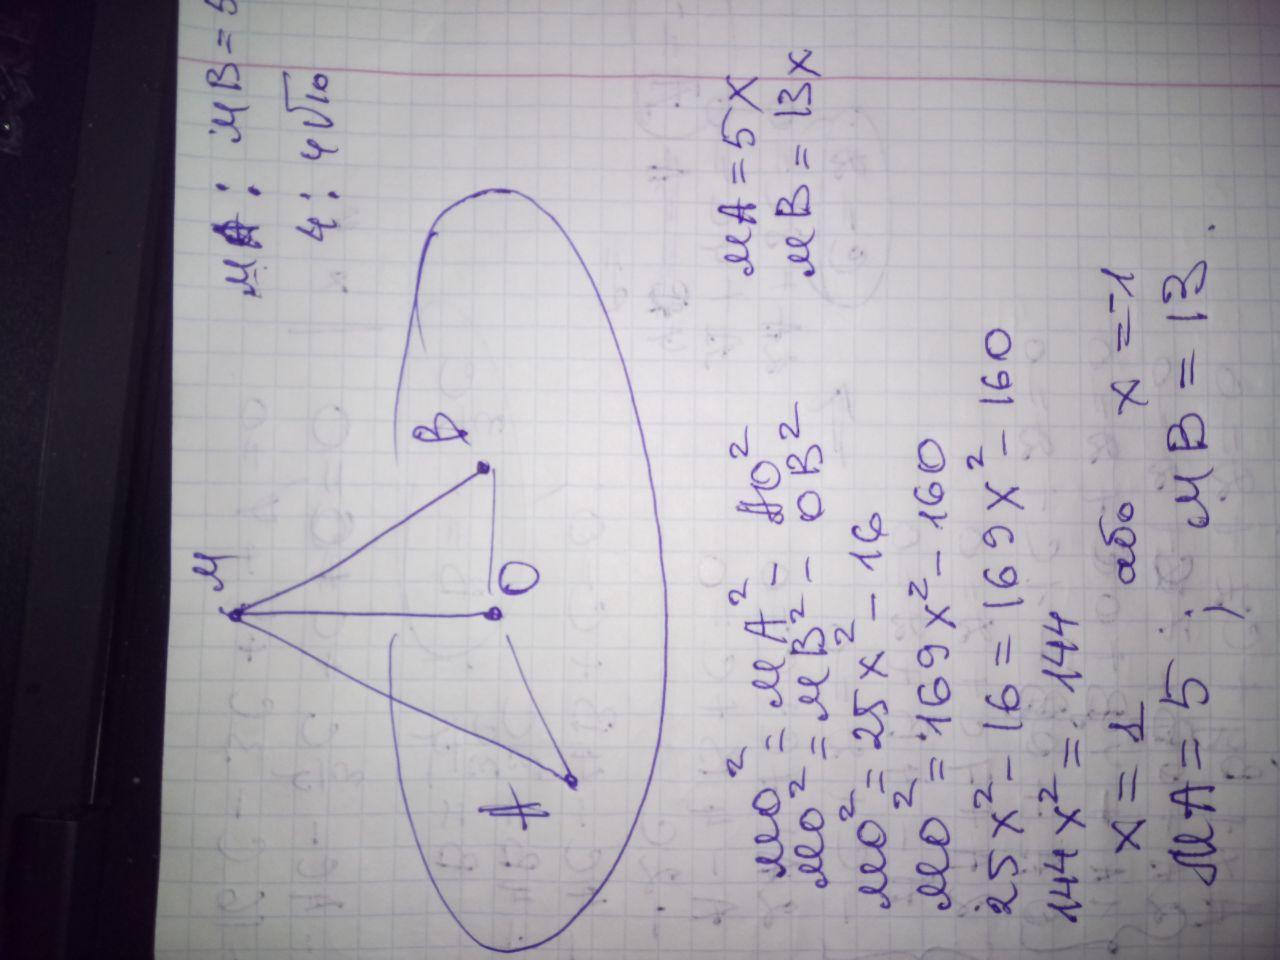 MA : MB = 5
4 : 4√10
M
B
O
A
MO² = MA² - AO²
MO² = MB² - OB²
MA = 5x
MB = 13x
MO² = 25x² - 16
MO² = 169x² - 160
25x² - 16 = 169x² - 160
144x² = 144
x = 1 або x = -1
MA = 5 ; MB = 13.